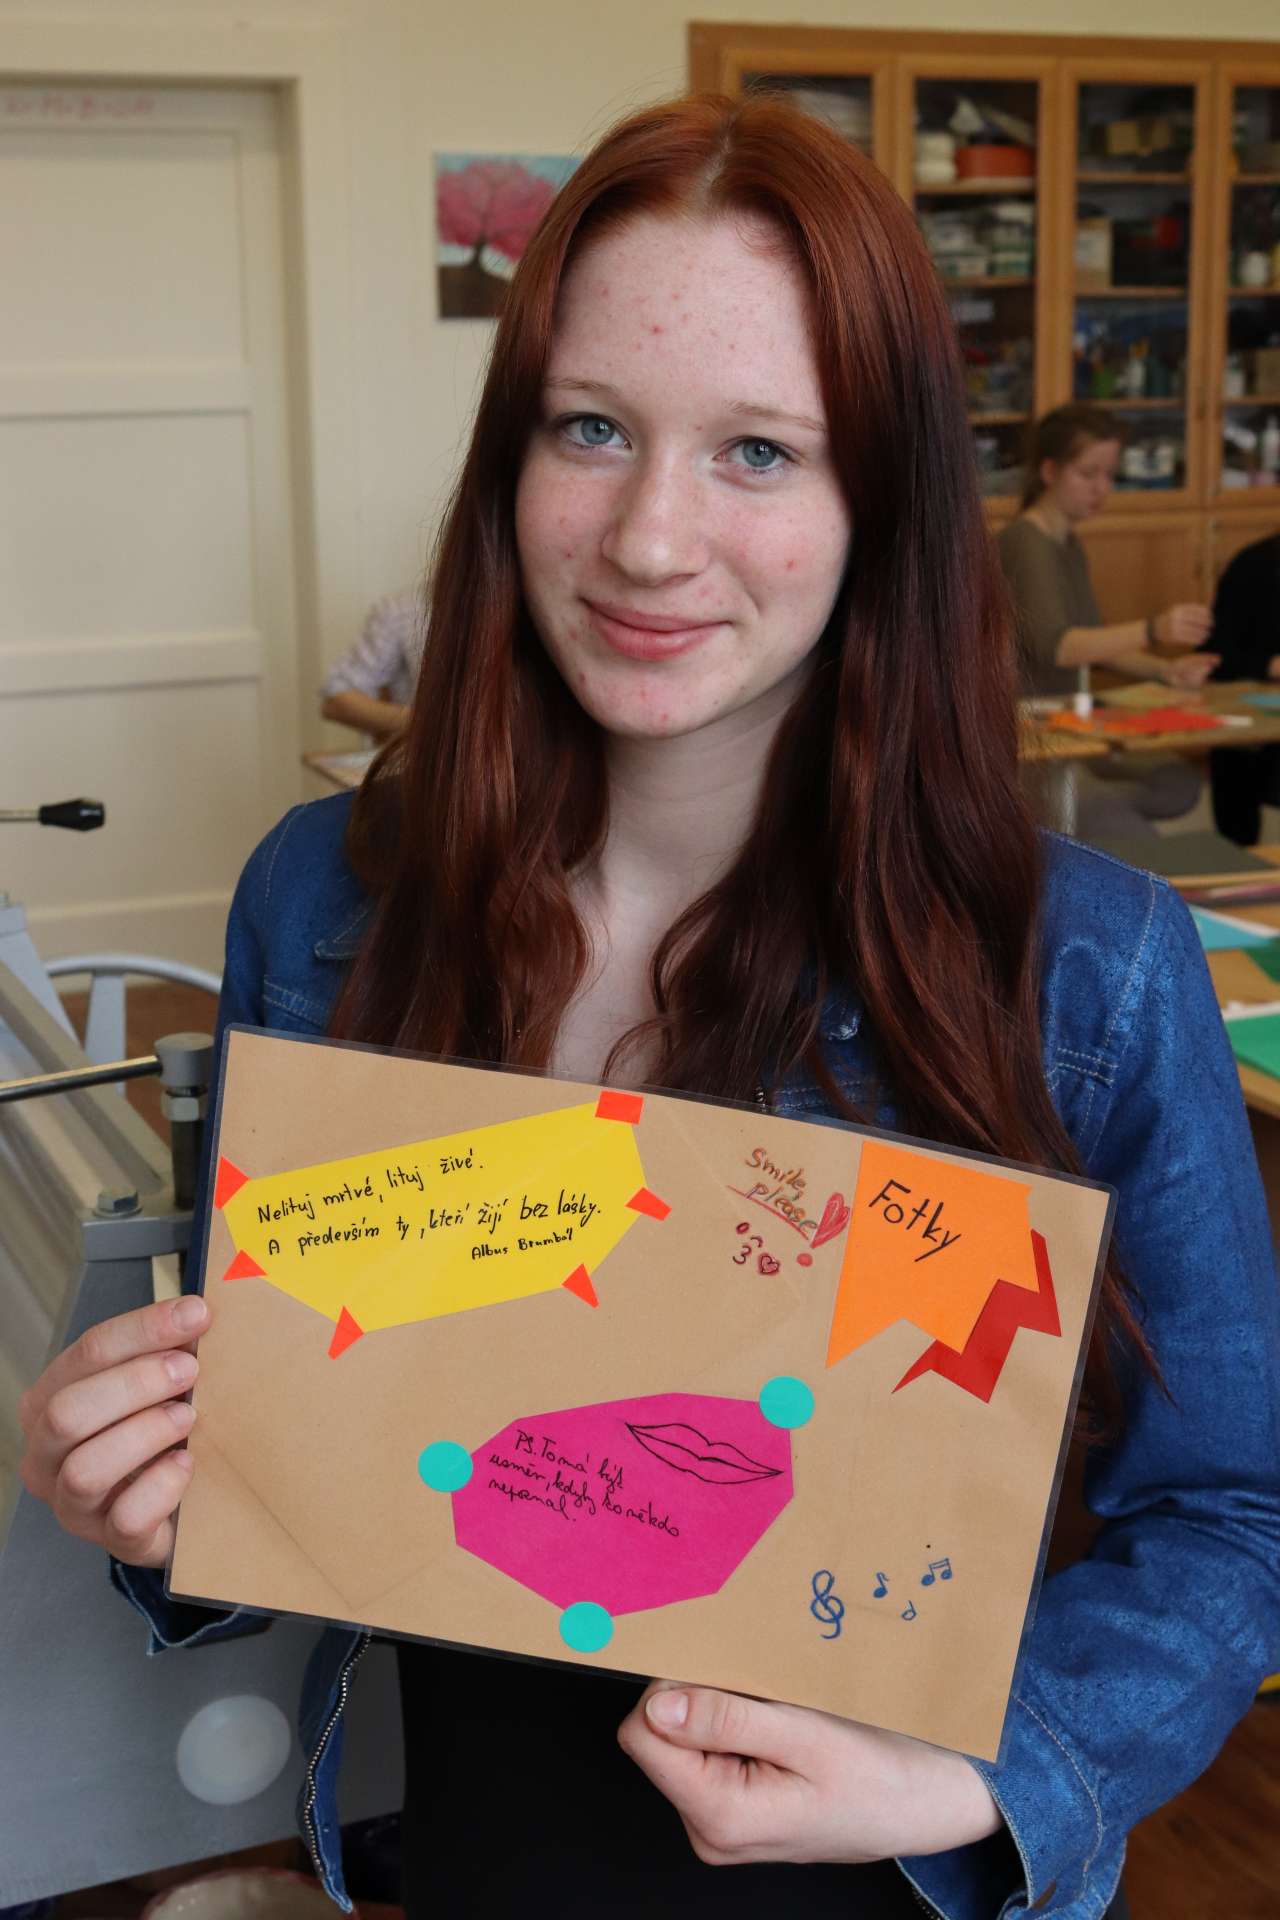 Nelituj mrtvé, lituj živé.
A především ty, kteří žijí bez lásky.
Albus Brumbál
Smile,
please
Fotky
PS. To má být
usměv, kdyby ho někdo
nepoznal.